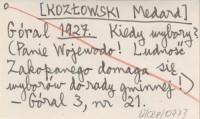 [KOZŁOWSKI Medard]
Góral 1927. Kiedy wybory?
(Panie Wojewodo! Ludność
Zakopanego domaga się
wyborów do rady gminnej!)
– Góral 3, nr 21.